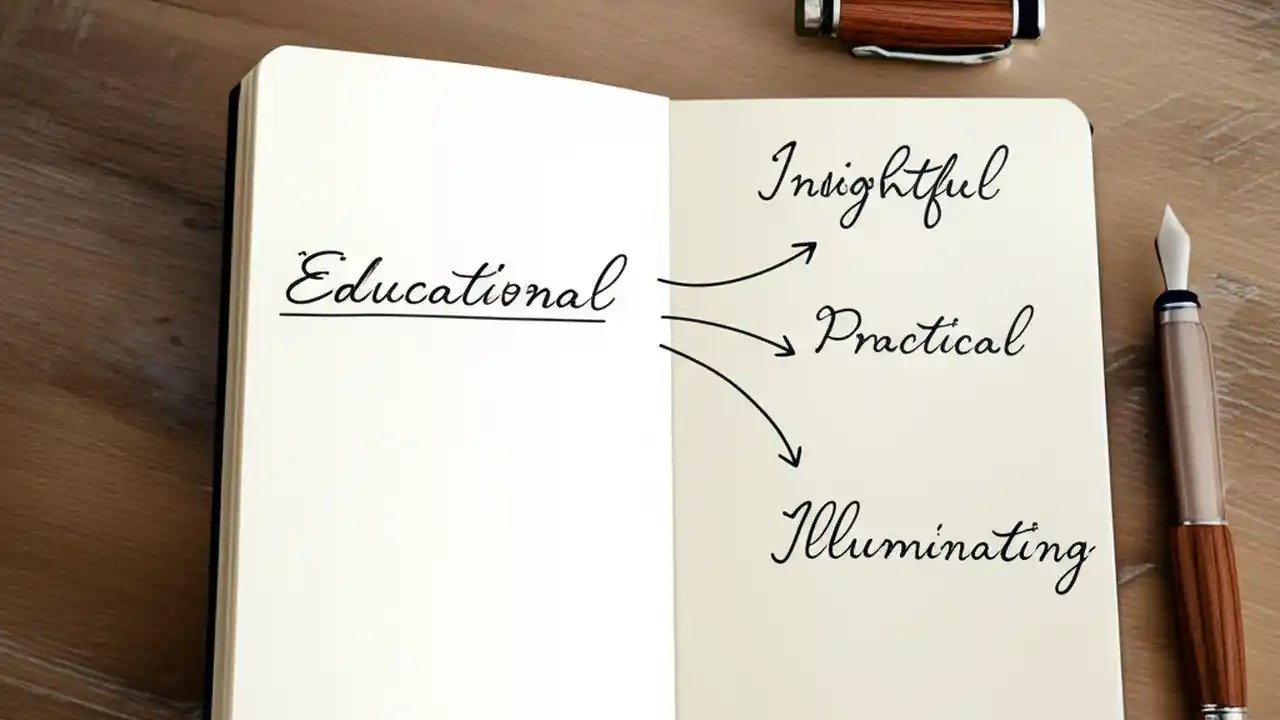 Educational
Insightful
Practical
Illuminating